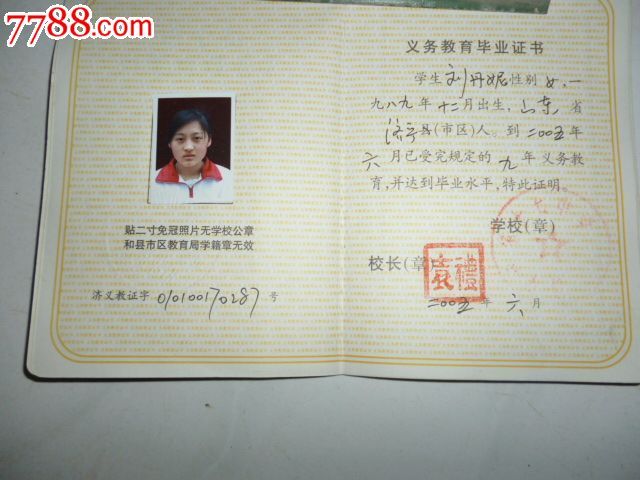 7788.com
义务教育毕业证书
学生刘丹妮性别女,一
九八九年十二月出生,山东省
济宁县(市区)人。到二〇〇五年
六月已受完规定的九年义务教
育,并达到毕业水平,特此证明。
学校(章)
校长(章)
二〇〇五年六月
贴二寸免冠照片无学校公章
和县市区教育局学籍章无效
济义教证字010100170287号